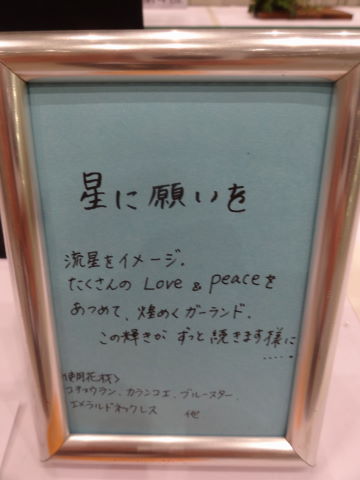 星に願いを
流星をイメージ.
たくさんの Love & peace を
あつめて、煌めくガーランド.
この輝きが ずっと続きます様に
.....
<使用花材>
コチョウラン、カランコエ、ブルースター、
エメラルドネックレス 他